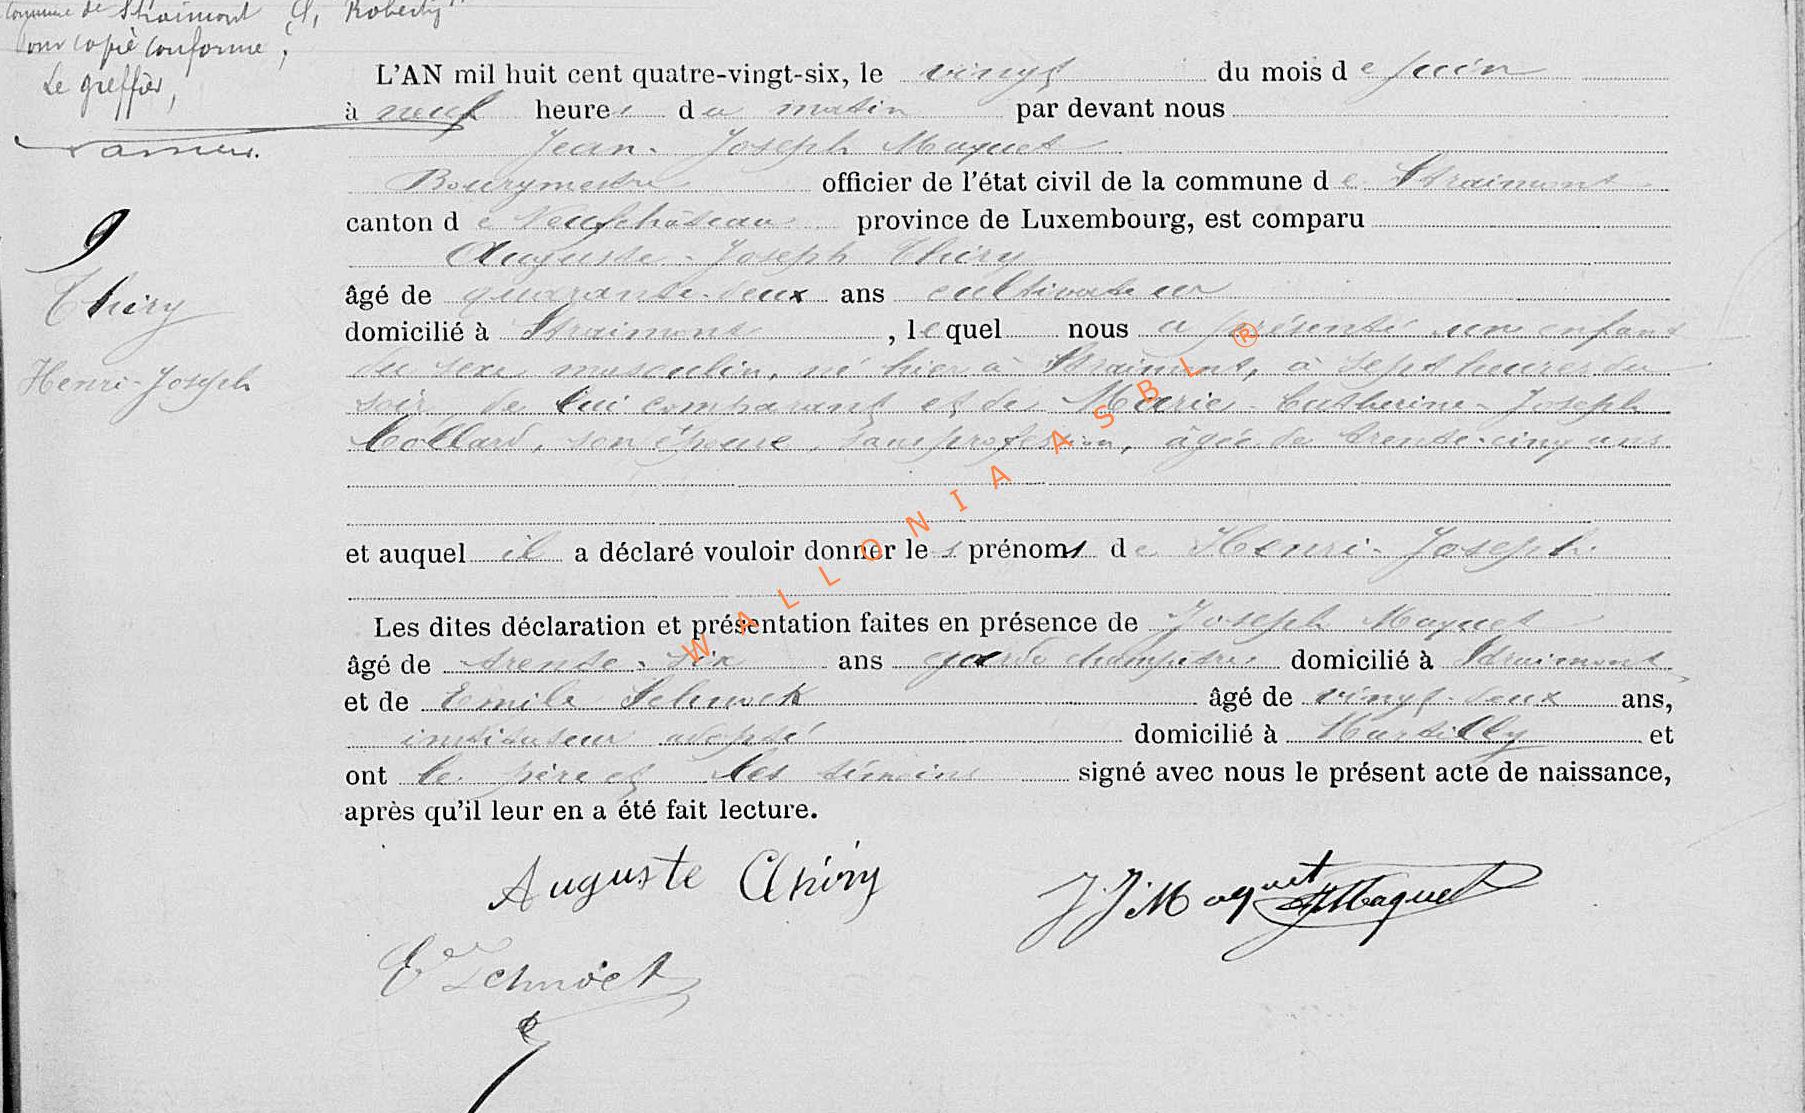 Commune de Straimont
Pour copie conforme,
Le greffier,
9
Thiry
Henri-Joseph
L'AN mil huit cent quatre-vingt-six, le vingt du mois de juin
à neuf heures du matin par devant nous
Jean-Joseph Maquet
Bourgmestre officier de l'état civil de la commune de Straimont
canton de Neufchâteau province de Luxembourg, est comparu
Auguste-Joseph Thiry
âgé de quarante-deux ans cultivateur
domicilié à Straimont, lequel nous a présenté un enfant
du sexe masculin, né hier à Straimont, à sept heures du
soir de lui comparant et de Marie-Catherine-Joseph
Collard, son épouse, sans profession, âgée de trente-cinq ans
et auquel il a déclaré vouloir donner les prénoms de Henri-Joseph.
Les dites déclaration et présentation faites en présence de Joseph Maquet
âgé de trente-six ans garde champêtre domicilié à Straimont
et de Emile Schmock âgé de vingt-deux ans,
instituteur adopté domicilié à Martilly et
ont le père et les témoins signé avec nous le présent acte de naissance,
après qu'il leur en a été fait lecture.
Auguste Thiry
J. J. Maquet
J Maquet
WALLONIA ASBL ®